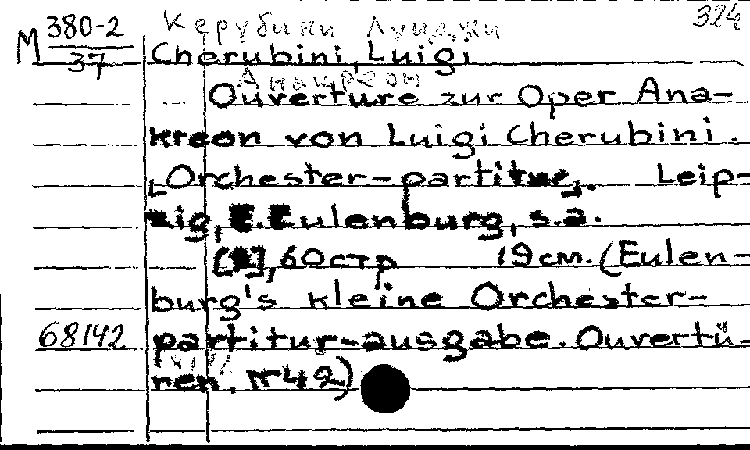 Керубини Луиджи 324
М 380-2
37
Cherubini, Luigi
Анакреон
Ouverture zur Oper Ana-
kreon von Luigi Cherubini.
[Orchester-partitur]. Leip-
zig, E. Eulenburg, s.a.
60 стр 19 см. (Eulen-
burg's kleine Orchester-
68142 partitur-ausgabe. Ouvertü-
ren, № 42)